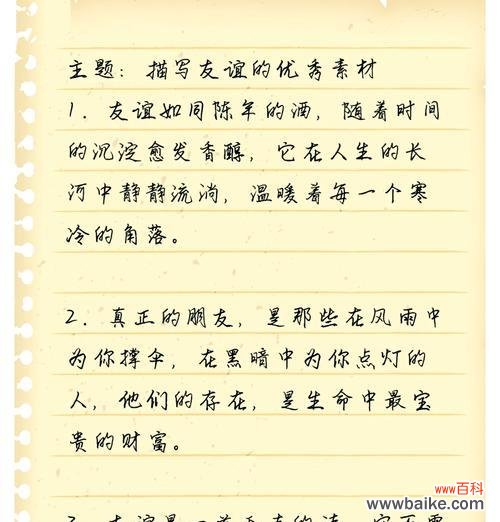 主题：描写友谊的优秀素材
1. 友谊如同陈年的酒，随着时间
的沉淀愈发香醇，它在人生的长
河中静静流淌，温暖着每一个寒
冷的角落。
2. 真正的朋友，是那些在风雨中
为你撑伞，在黑暗中为你点灯的
人，他们的存在，是生命中最宝
贵的财富。
www百科
www.baike.com